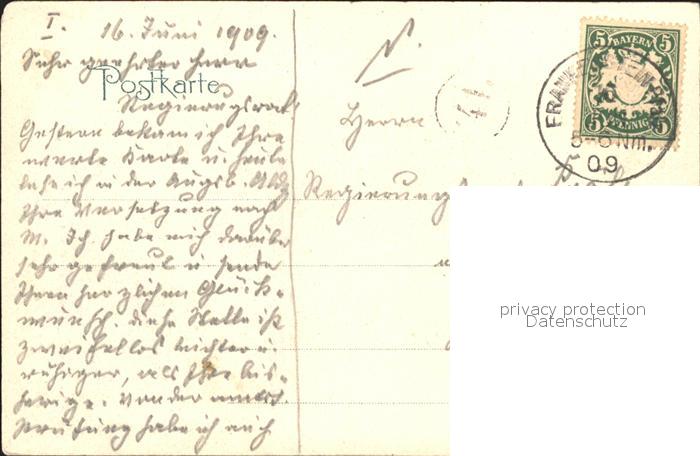 I. 16. Juni 1909.
Sehr geehrter Herr
Postkarte
Regierungsrat
Gestern bekam ich Ihre
werte Karte u. heute
lese ich in der Augsb. Abdz
Ihre Versetzung nach
M. Ich habe mich darüber
sehr gefreut u. sende
Ihnen herzlichen Glück-
wunsch. Diese Stelle ist
zweifellos leichter u.
ruhiger, als Ihre bis-
herige. Von der
Prüfung habe ich auch
Herrn
Regierungs
41
BAYERN
5 5
5 PFENNIG 5
FRANKE
5-6 Nm.
09
privacy protection
Datenschutz